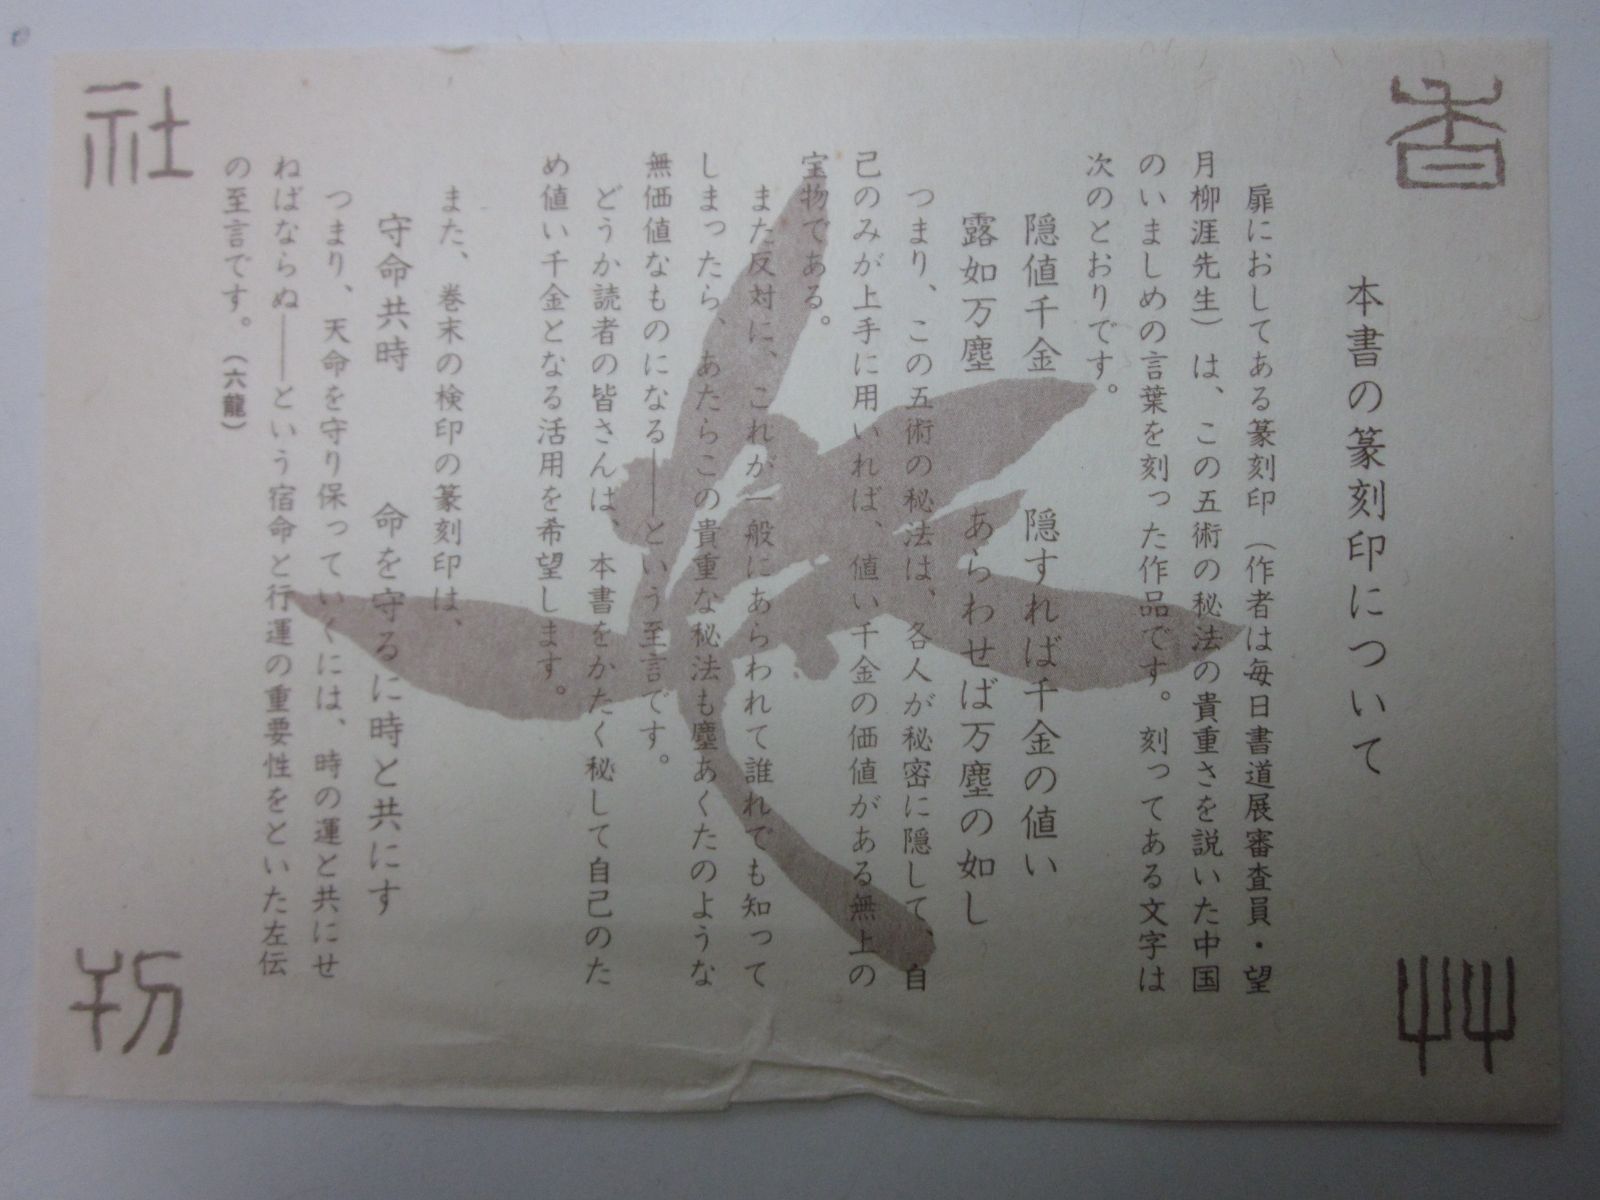 香
艸
社
本書の篆刻印について
扉におしてある篆刻印（作者は毎日書道展審査員・望
月柳涯先生）は、この五術の秘法の貴重さを説いた中国
のいましめの言葉を刻った作品です。刻ってある文字は
次のとおりです。
隠値千金　隠すれば千金の値い
露如万塵　あらわせば万塵の如し
つまり、この五術の秘法は、各人が秘密に隠して、自
己のみが上手に用いれば、値い千金の価値がある無上の
宝物である。
また反対に、これが一般にあらわれて誰れでも知って
しまったら、あたらこの貴重な秘法も塵あくたのような
無価値なものになる――という至言です。
どうか読者の皆さんは、本書をかたく秘して自己のた
め値い千金となる活用を希望します。
また、巻末の検印の篆刻印は、
守命共時　命を守るに時と共にす
つまり、天命を守り保っていくには、時の運と共にせ
ねばならぬ――という宿命と行運の重要性をといた左伝
の至言です。（六龍）